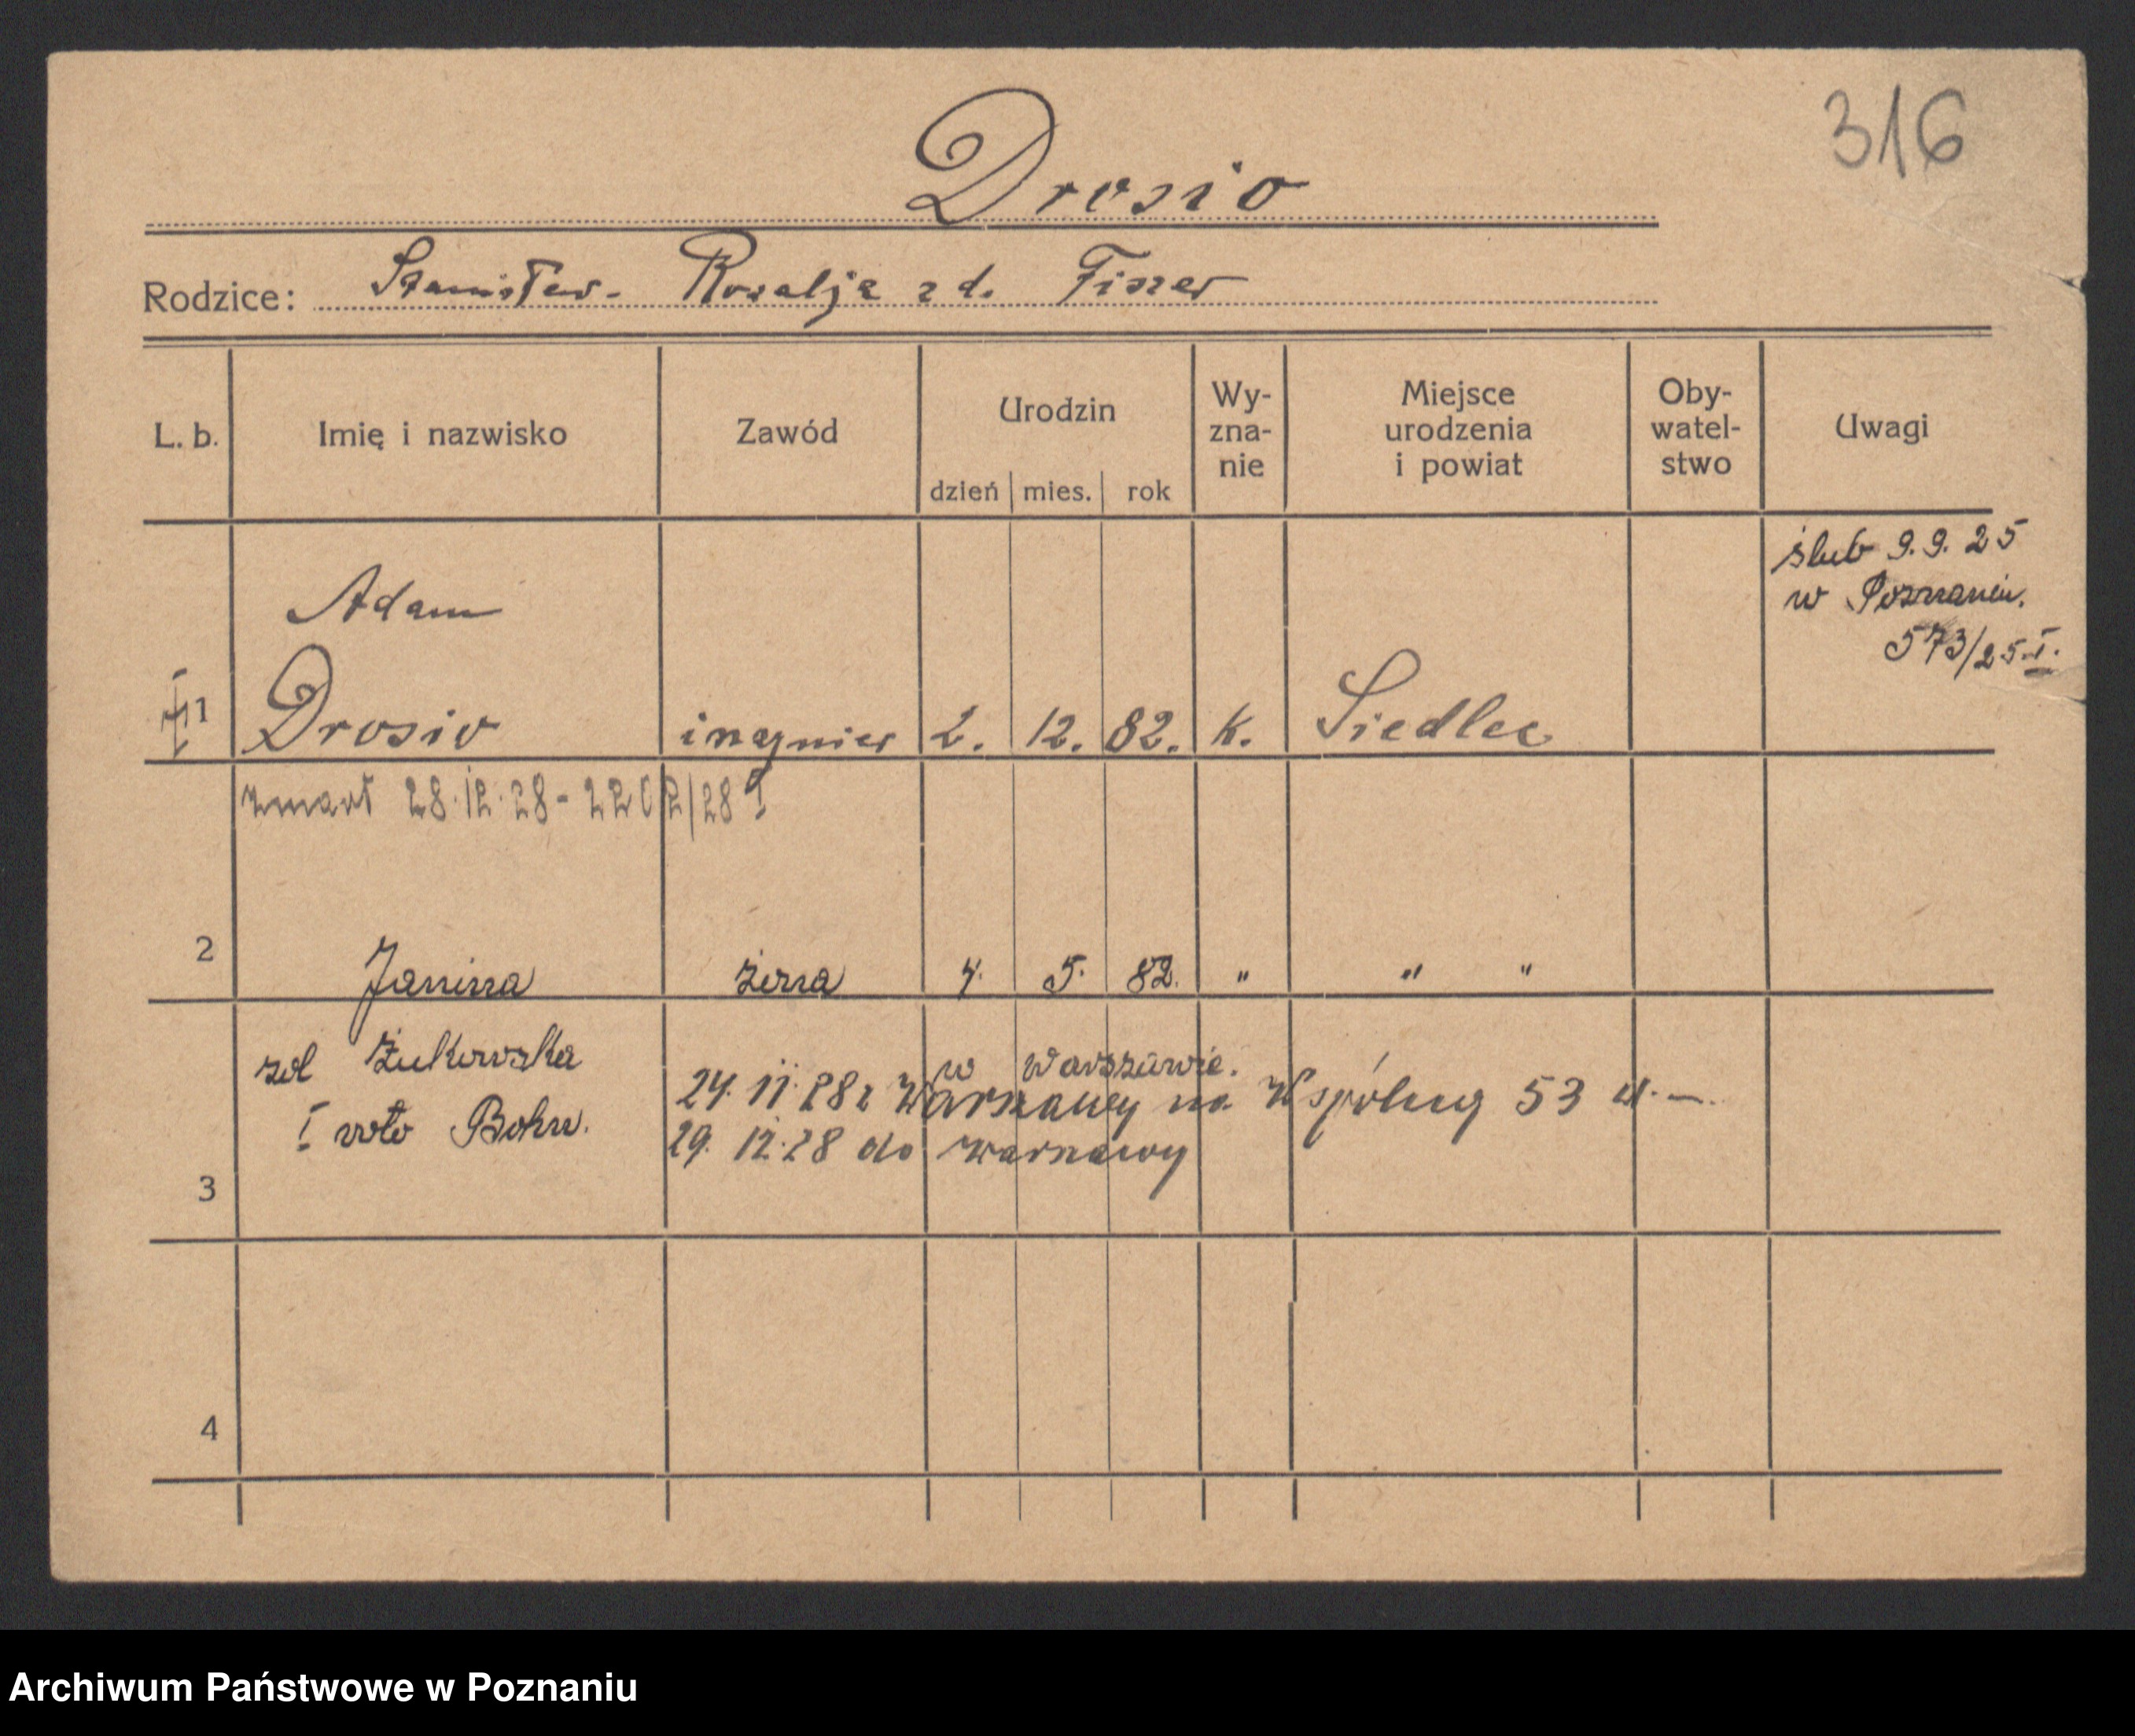 316
Drosio
Rodzice: Stanisław - Rozalja z d. Fiszer
L. b. Imię i nazwisko Zawód Urodzin dzień mies. rok Wy- zna- nie Miejsce urodzenia i powiat Oby- watel- stwo Uwagi
ślub 9.9.25
w Poznaniu.
573/25 I.
Adam
1 Drosio inżynier 2. 12. 82. k. Siedlec
zmarł 28.12.28 - 2202/28 I
2 Janina żona 4. 5. 82. " " "
zd Żukowska w Warszawie.
24.11.28 z Warszawy na Wspólną 53
I voto Bohn.
29.12.28 do Warszawy
3
4
Archiwum Państwowe w Poznaniu